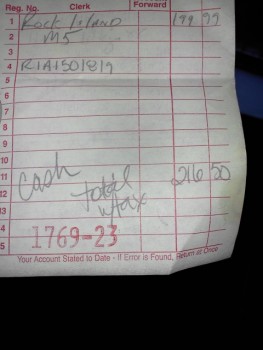 Reg. No. Clerk Forward
1 Rock Island 199 99
2 M5
3
4 RIA1501819
5
6
7
8
9
10
11 Cash total 216 50
12 w/tax
13
14
15 1769-23
Your Account Stated to Date - If Error is Found, Return at Once